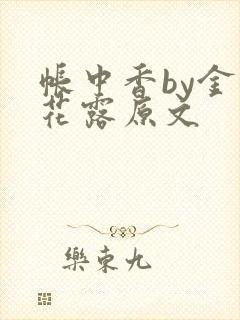 帐中香by金
花露原文
樂東九